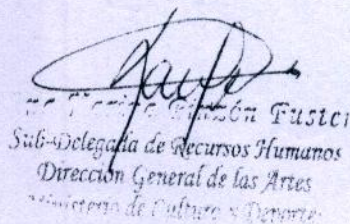 Fuster
Sub-Delegada de Recursos Humanos
Dirección General de las Artes
Ministerio de Cultura y Deportes